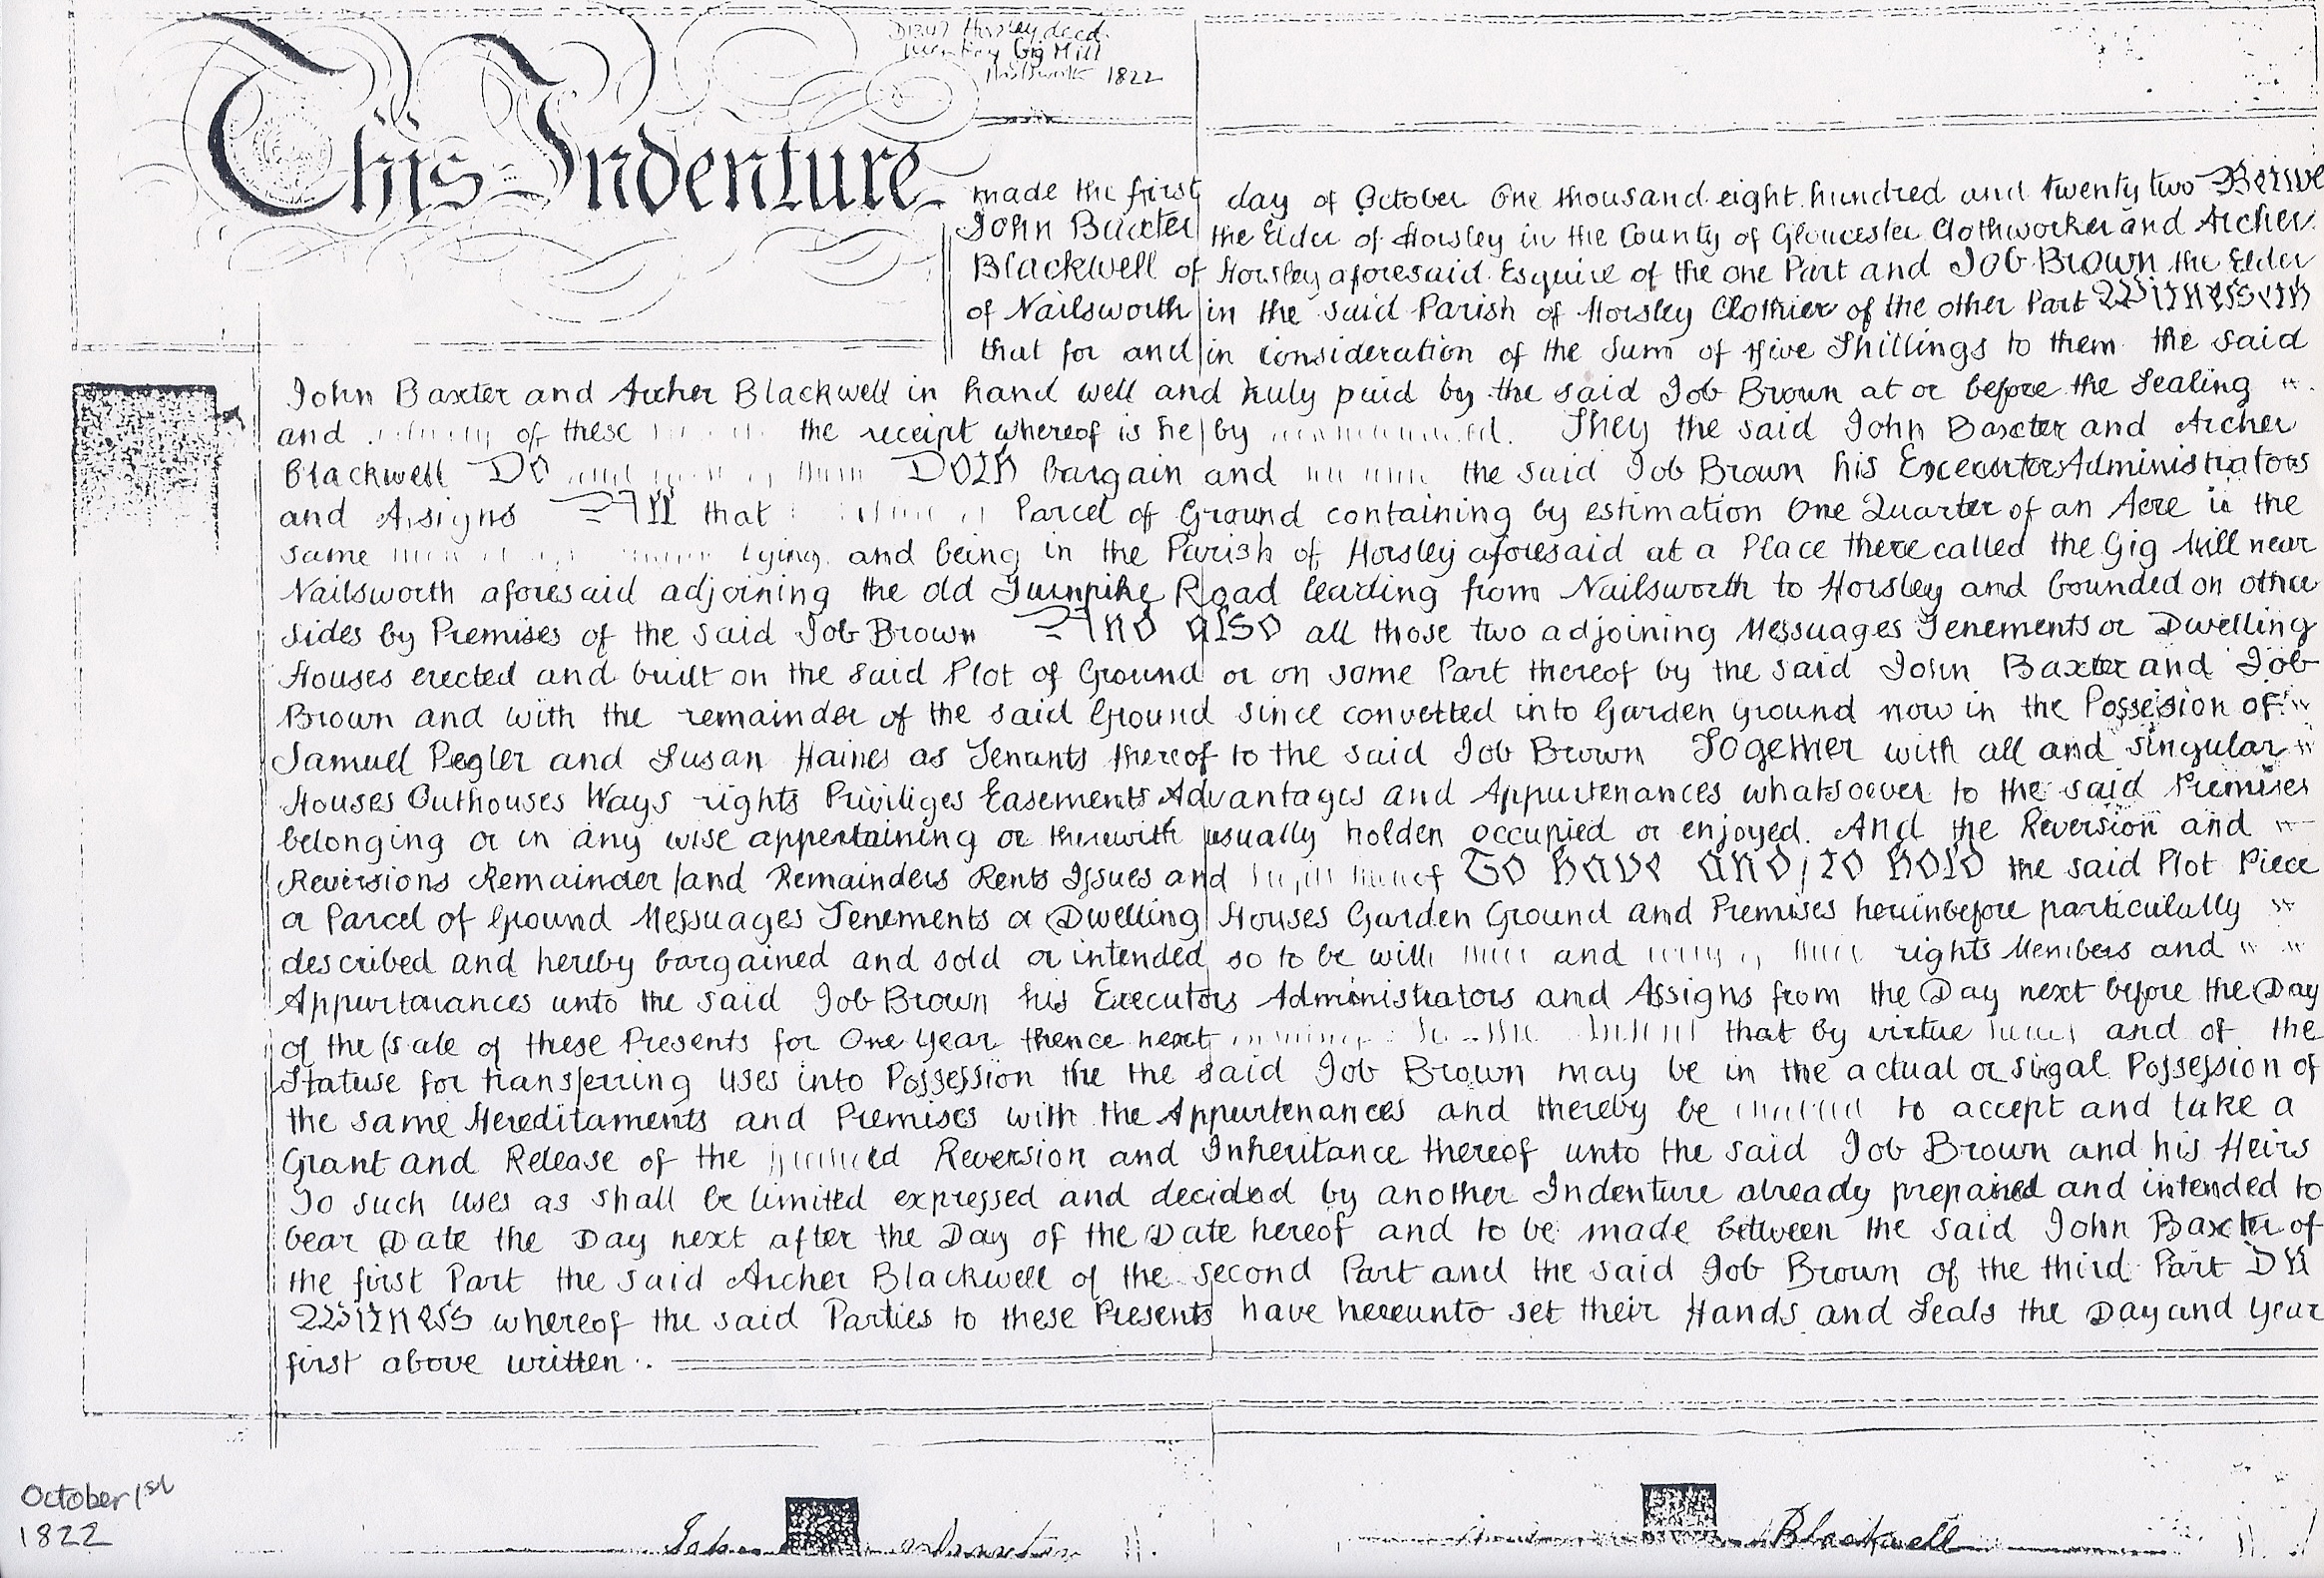 Horsley deed
Gig Mill
1822
This Indenture
made the first day of October One thousand eight hundred and twenty two Betwe
John Baxter the Elder of Horsley in the County of Gloucester Clothworker and Archer
Blackwell of Horsley aforesaid Esquire of the one Part and Job Brown the Elder
of Nailsworth in the said Parish of Horsley Clothier of the other Part Witnesseth
that for and in consideration of the Sum of Five Shillings to them the said
John Baxter and Archer Blackwell in hand well and truly paid by the said Job Brown at or before the Sealing
and of these the receipt whereof is hereby They the said John Baxter and Archer
Blackwell Do and Doth bargain and the said Job Brown his Executors Administrators
and Assigns All that Parcel of Ground containing by estimation One Quarter of an Acre is the
same lying and being in the Parish of Horsley aforesaid at a Place there called the Gig Mill near
Nailsworth aforesaid adjoining the old Turnpike Road leading from Nailsworth to Horsley and bounded on other
sides by Premises of the said Job Brown And also all those two adjoining Messuages Tenements or Dwelling
Houses erected and built on the said Plot of Ground or on some Part thereof by the said John Baxter and Job
Brown and with the remainder of the said Ground since convetted into Garden Ground now in the Possession of
Samuel Pegler and Susan Haines as Tenants thereof to the said Job Brown Together with all and singular
Houses Outhouses Ways rights Priviliges Easements Advantages and Appurtenances whatsoever to the said Premises
belonging or in any wise appertaining or therewith usually holden occupied or enjoyed. And the Reversion and
Reversions Remainder and Remainders Rents Issues and To have and to hold the said Plot Piece
or Parcel of Ground Messuages Tenements or Dwelling Houses Garden Ground and Premises hereinbefore particulally
described and hereby bargained and sold or intended so to be with and rights Members and
Appurtanances unto the said Job Brown his Executors Administrators and Assigns from the Day next before the Day
of the Sale of these Presents for One Year thence next that by virtue and of the
Statuse for transferring Uses into Possession the the said Job Brown may be in the actual or Sigal Possession of
the same Hereditaments and Premises with the Appurtenances and thereby be to accept and take a
Grant and Release of the Reversion and Inheritance thereof unto the said Job Brown and his Heirs
To such Uses as shall be limited expressed and decided by another Indenture already prepaired and intended to
bear Date the Day next after the Day of the Date hereof and to be made between the said John Baxter of
the first Part the said Archer Blackwell of the second Part and the said Job Brown of the third Part In
Witness whereof the said Parties to these Presents have hereunto set their Hands and Seals the Day and Year
first above written
October 1st
1822
John
Blackwell